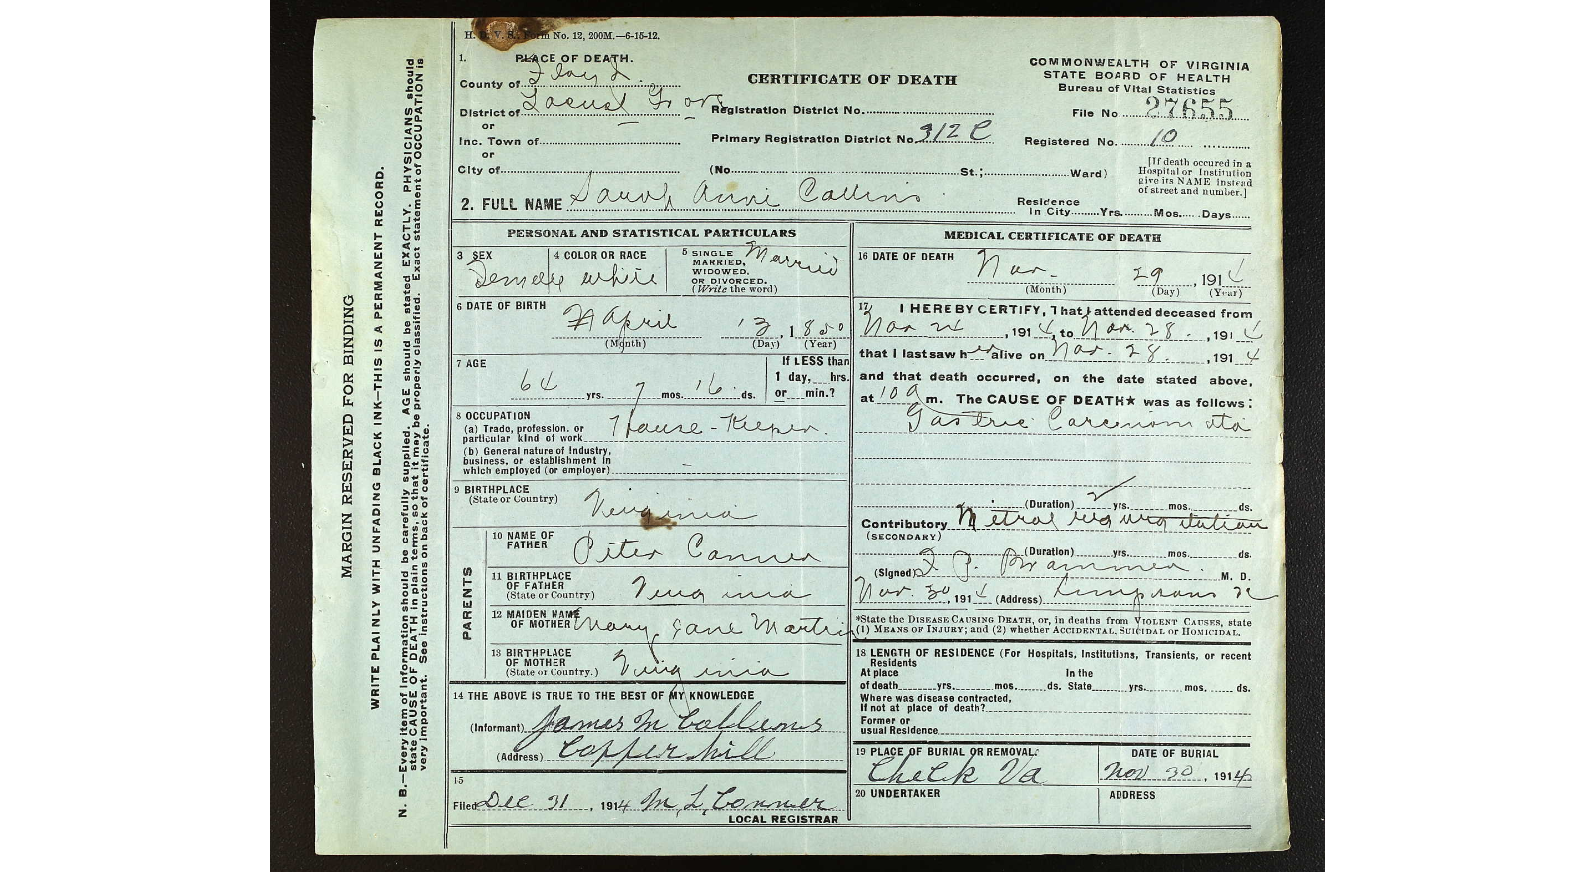 H. B. V. S. Form No. 12, 200M.—6-15-12.
1. PLACE OF DEATH.
County of Floyd
District of Locust Grove
or
Inc. Town of
or
City of
CERTIFICATE OF DEATH
Registration District No.
Primary Registration District No. 312 C
(No. St.; Ward)
COMMONWEALTH OF VIRGINIA
STATE BOARD OF HEALTH
Bureau of Vital Statistics
File No 27655
Registered No. 10
[If death occured in a
Hospital or Institution
give its NAME instead
of street and number.]
2. FULL NAME Sarah Anne Collins
Residence
In City Yrs. Mos. Days
PERSONAL AND STATISTICAL PARTICULARS
3 SEX
Female
4 COLOR OR RACE
white
5 SINGLE
MARRIED,
WIDOWED.
OR DIVORCED.
(Write the word)
Married
6 DATE OF BIRTH
April 13, 1850
(Month) (Day) (Year)
7 AGE
64 yrs. 7 mos. 16 ds.
If LESS than
1 day, hrs.
or min.?
8 OCCUPATION
(a) Trade, profession, or
particular kind of work House-Keeper
(b) General nature of Industry,
business, or establishment in
which employed (or employer) -
9 BIRTHPLACE
(State or Country) Virginia
PARENTS
10 NAME OF
FATHER Peter Conner
11 BIRTHPLACE
OF FATHER
(State or Country) Virginia
12 MAIDEN NAME
OF MOTHER Mary Jane Martin
13 BIRTHPLACE
OF MOTHER
(State or Country.) Virginia
14 THE ABOVE IS TRUE TO THE BEST OF MY KNOWLEDGE
(Informant) James M Collins
(Address) Copper hill
15
Filed Dec 31, 1914 M. L. Conner
LOCAL REGISTRAR
MEDICAL CERTIFICATE OF DEATH
16 DATE OF DEATH
Nov. 29, 1914
(Month) (Day) (Year)
17 I HEREBY CERTIFY, That I attended deceased from
Nov 24, 1914, to Nov. 28., 1914
that I last saw her alive on Nov. 28, 1914
and that death occurred, on the date stated above,
at 10 a m. The CAUSE OF DEATH★ was as follows:
Gastric Carcinomata
(Duration) 2 yrs. mos. ds.
Contributory Mitral regurgitation
(SECONDARY)
(Duration) yrs. mos. ds.
(Signed) Brammer. M. D.
Nov. 30, 1914 (Address) Simpsons
*State the DISEASE CAUSING DEATH, or, in deaths from VIOLENT CAUSES, state
(1) MEANS OF INJURY; and (2) whether ACCIDENTAL, SUICIDAL or HOMICIDAL.
18 LENGTH OF RESIDENCE (For Hospitals, Institutions, Transients, or recent
Residents
At place In the
of death yrs. mos. ds. State yrs. mos. ds.
Where was disease contracted,
If not at place of death?
Former or
usual Residence
19 PLACE OF BURIAL OR REMOVAL:
Check Va
DATE OF BURIAL
Nov 30, 1914
20 UNDERTAKER
ADDRESS
MARGIN RESERVED FOR BINDING
WRITE PLAINLY WITH UNFADING BLACK INK—THIS IS A PERMANENT RECORD.
N. B.—Every item of Information should be carefully supplied. AGE should be stated EXACTLY. PHYSICIANS should
state CAUSE OF DEATH in plain terms, so that it may be properly classified. Exact statement of OCCUPATION is
very important. See instructions on back of certificate.